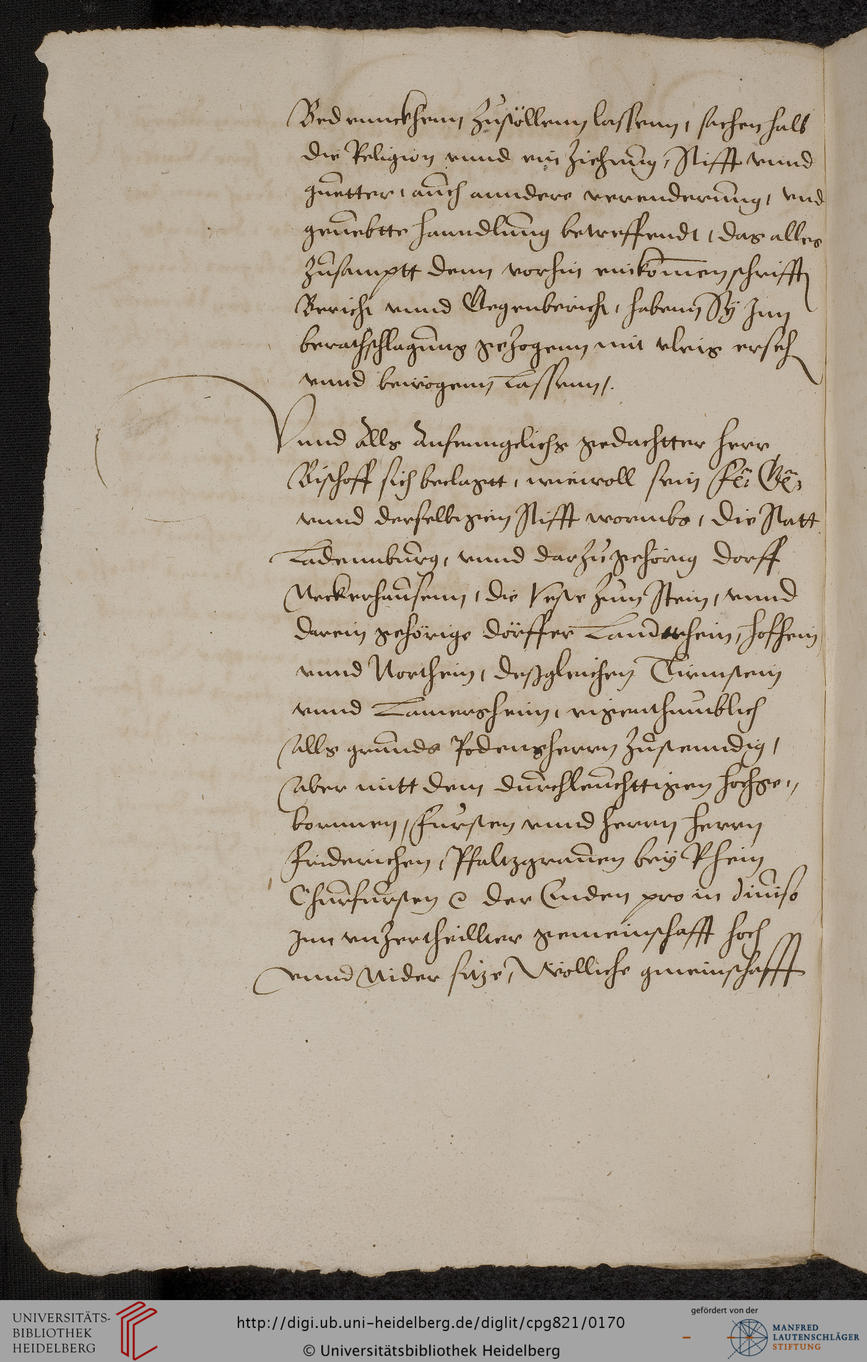 Bedennckhenn, Zusöllenn lassenn, sachen halb
die Religion vnnd ein Ziehung, Stifft vnnd
guetter, auch anndere verenderung, vnd
geuebtte hanndlung betreffendt, das alles
Zusamptt denn vorhin einkomen schrifft
Bericht vnnd Gegenbericht, habenn Sy Jnn
berathschlagung gezogenn mit vleis erseh
vnnd bewogenn Lassenn,.
Vnnd Alls Anfenngelichs gedachtter herr
Bischoff sich beclagtt, wiewoll sein
vnnd derselbigen Stifft wormbs, die Statt
Ladennburg, vnnd darzu gehörig dorff
Neckerhausenn, die Veste zum Stein, vnnd
darein gehörige dörffer hofhein
vnnd Northein, deßgleichen Dirmstein
vnnd Lamersheim, eigenthumblich
Alls grunds Podensherrn Zustenndig,
Aber mitt dem durchleuchttigen hochge„
bornnen, Fursten vnnd herrn herrn
Friderichen, Pfaltzgrauen bey Rhein
Churfursten der Enden pro in diuiso
Jnn vnzertheillter gemeinschafft hoch
vnnd Nider sitze, Wölliche gmeinschafft
UNIVERSITÄTS-
BIBLIOTHEK
HEIDELBERG
http://digi.ub.uni-heidelberg.de/diglit/cpg821/0170
© Universitätsbibliothek Heidelberg
gefördert von der
MANFRED
LAUTENSCHLÄGER
STIFTUNG